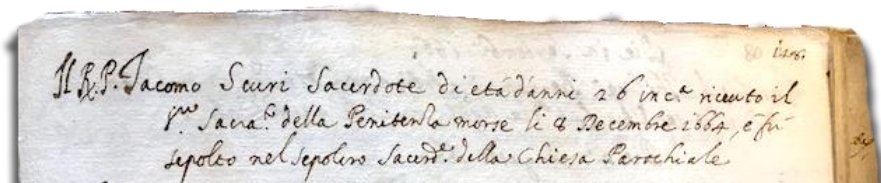 128.
Il R. P. Jacomo Scuri Sacerdote di età d'anni 26 inc.ª riceuto il
Sacra.º della Penitenza morse li 8 Decembre 1664, e fu
sepolto nel sepolcro Sacerd.e della Chiesa Parochiale